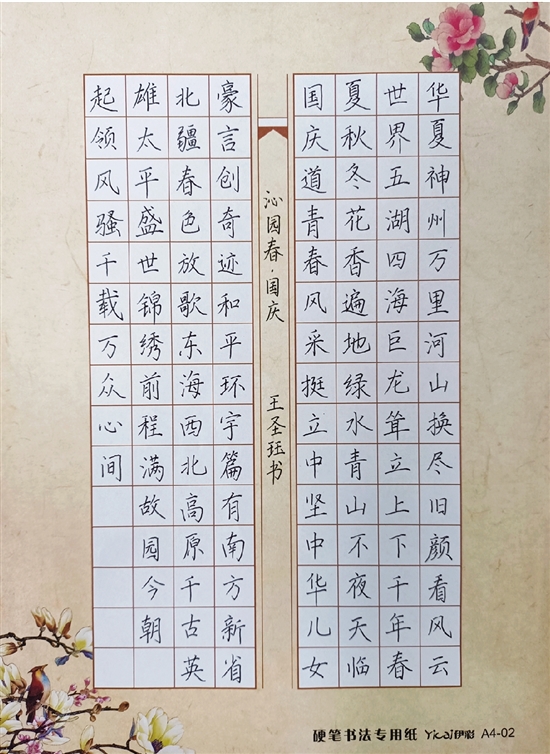 华夏神州万里河山换尽旧颜看风云
世界五湖四海巨龙耸立上下千年春
夏秋冬花香遍地绿水青山不夜天临
国庆道青春风采挺立中坚中华儿女
沁园春·国庆 王圣珏书
豪言创奇迹和平环宇篇有南方新省
北疆春色放歌东海西北高原千古英
雄太平盛世锦绣前程满故园今朝
起领风骚千载万众心间
硬笔书法专用纸 Yicai伊彩 A4-02